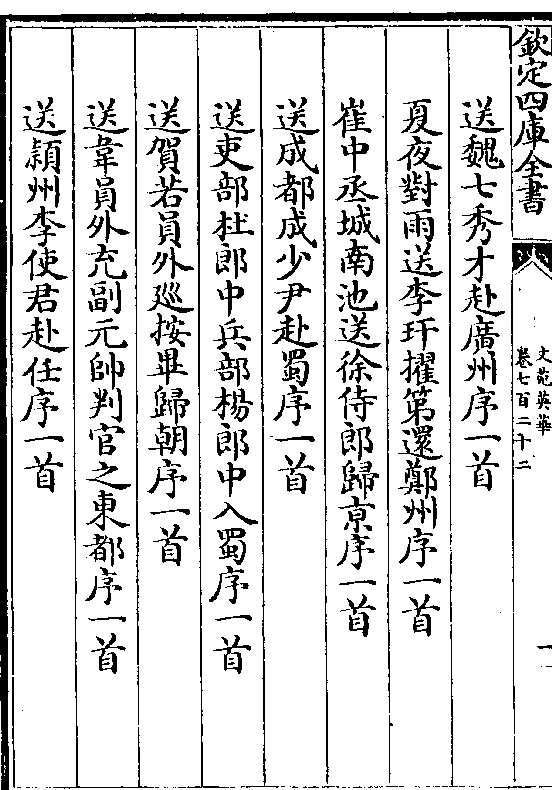 欽定四庫全書
文苑英華
卷七百二十二
一
送魏七秀才赴廣州序一首
夏夜對雨送李玕擢第還鄭州序一首
崔中丞城南池送徐侍郎歸京序一首
送成都成少尹赴蜀序一首
送吏部杜郎中兵部楊郎中入蜀序一首
送賀若員外廵按畢歸朝序一首
送韋員外充副元帥判官之東都序一首
送潁州李使君赴任序一首